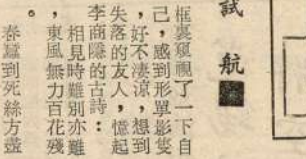 試航
框裏窺視了一下自
己，感到形單影隻
，好不淒涼，想到
失落的友人，憶起
李商隱的古詩：
相見時難別亦難
，東風無力百花殘
春蠶到死絲方盡